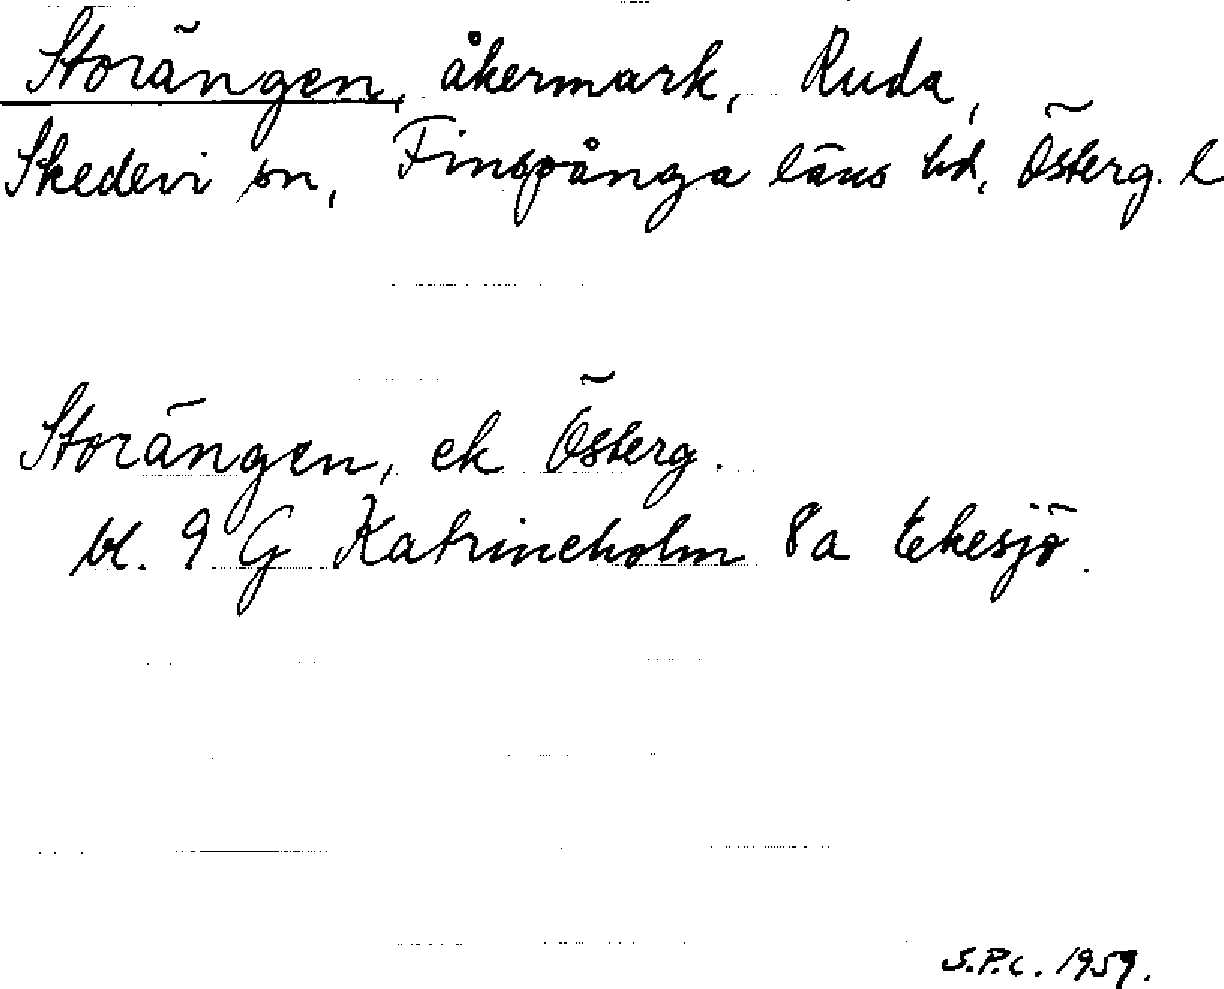 Storängen, åkermark, Ruda,
Skedevi sn, Finspånga läns hd, Österg. l
Storängen, ek Österg.
bl. 9 G Katrineholm 8a Ekesjö.
S.P.C. 1959.